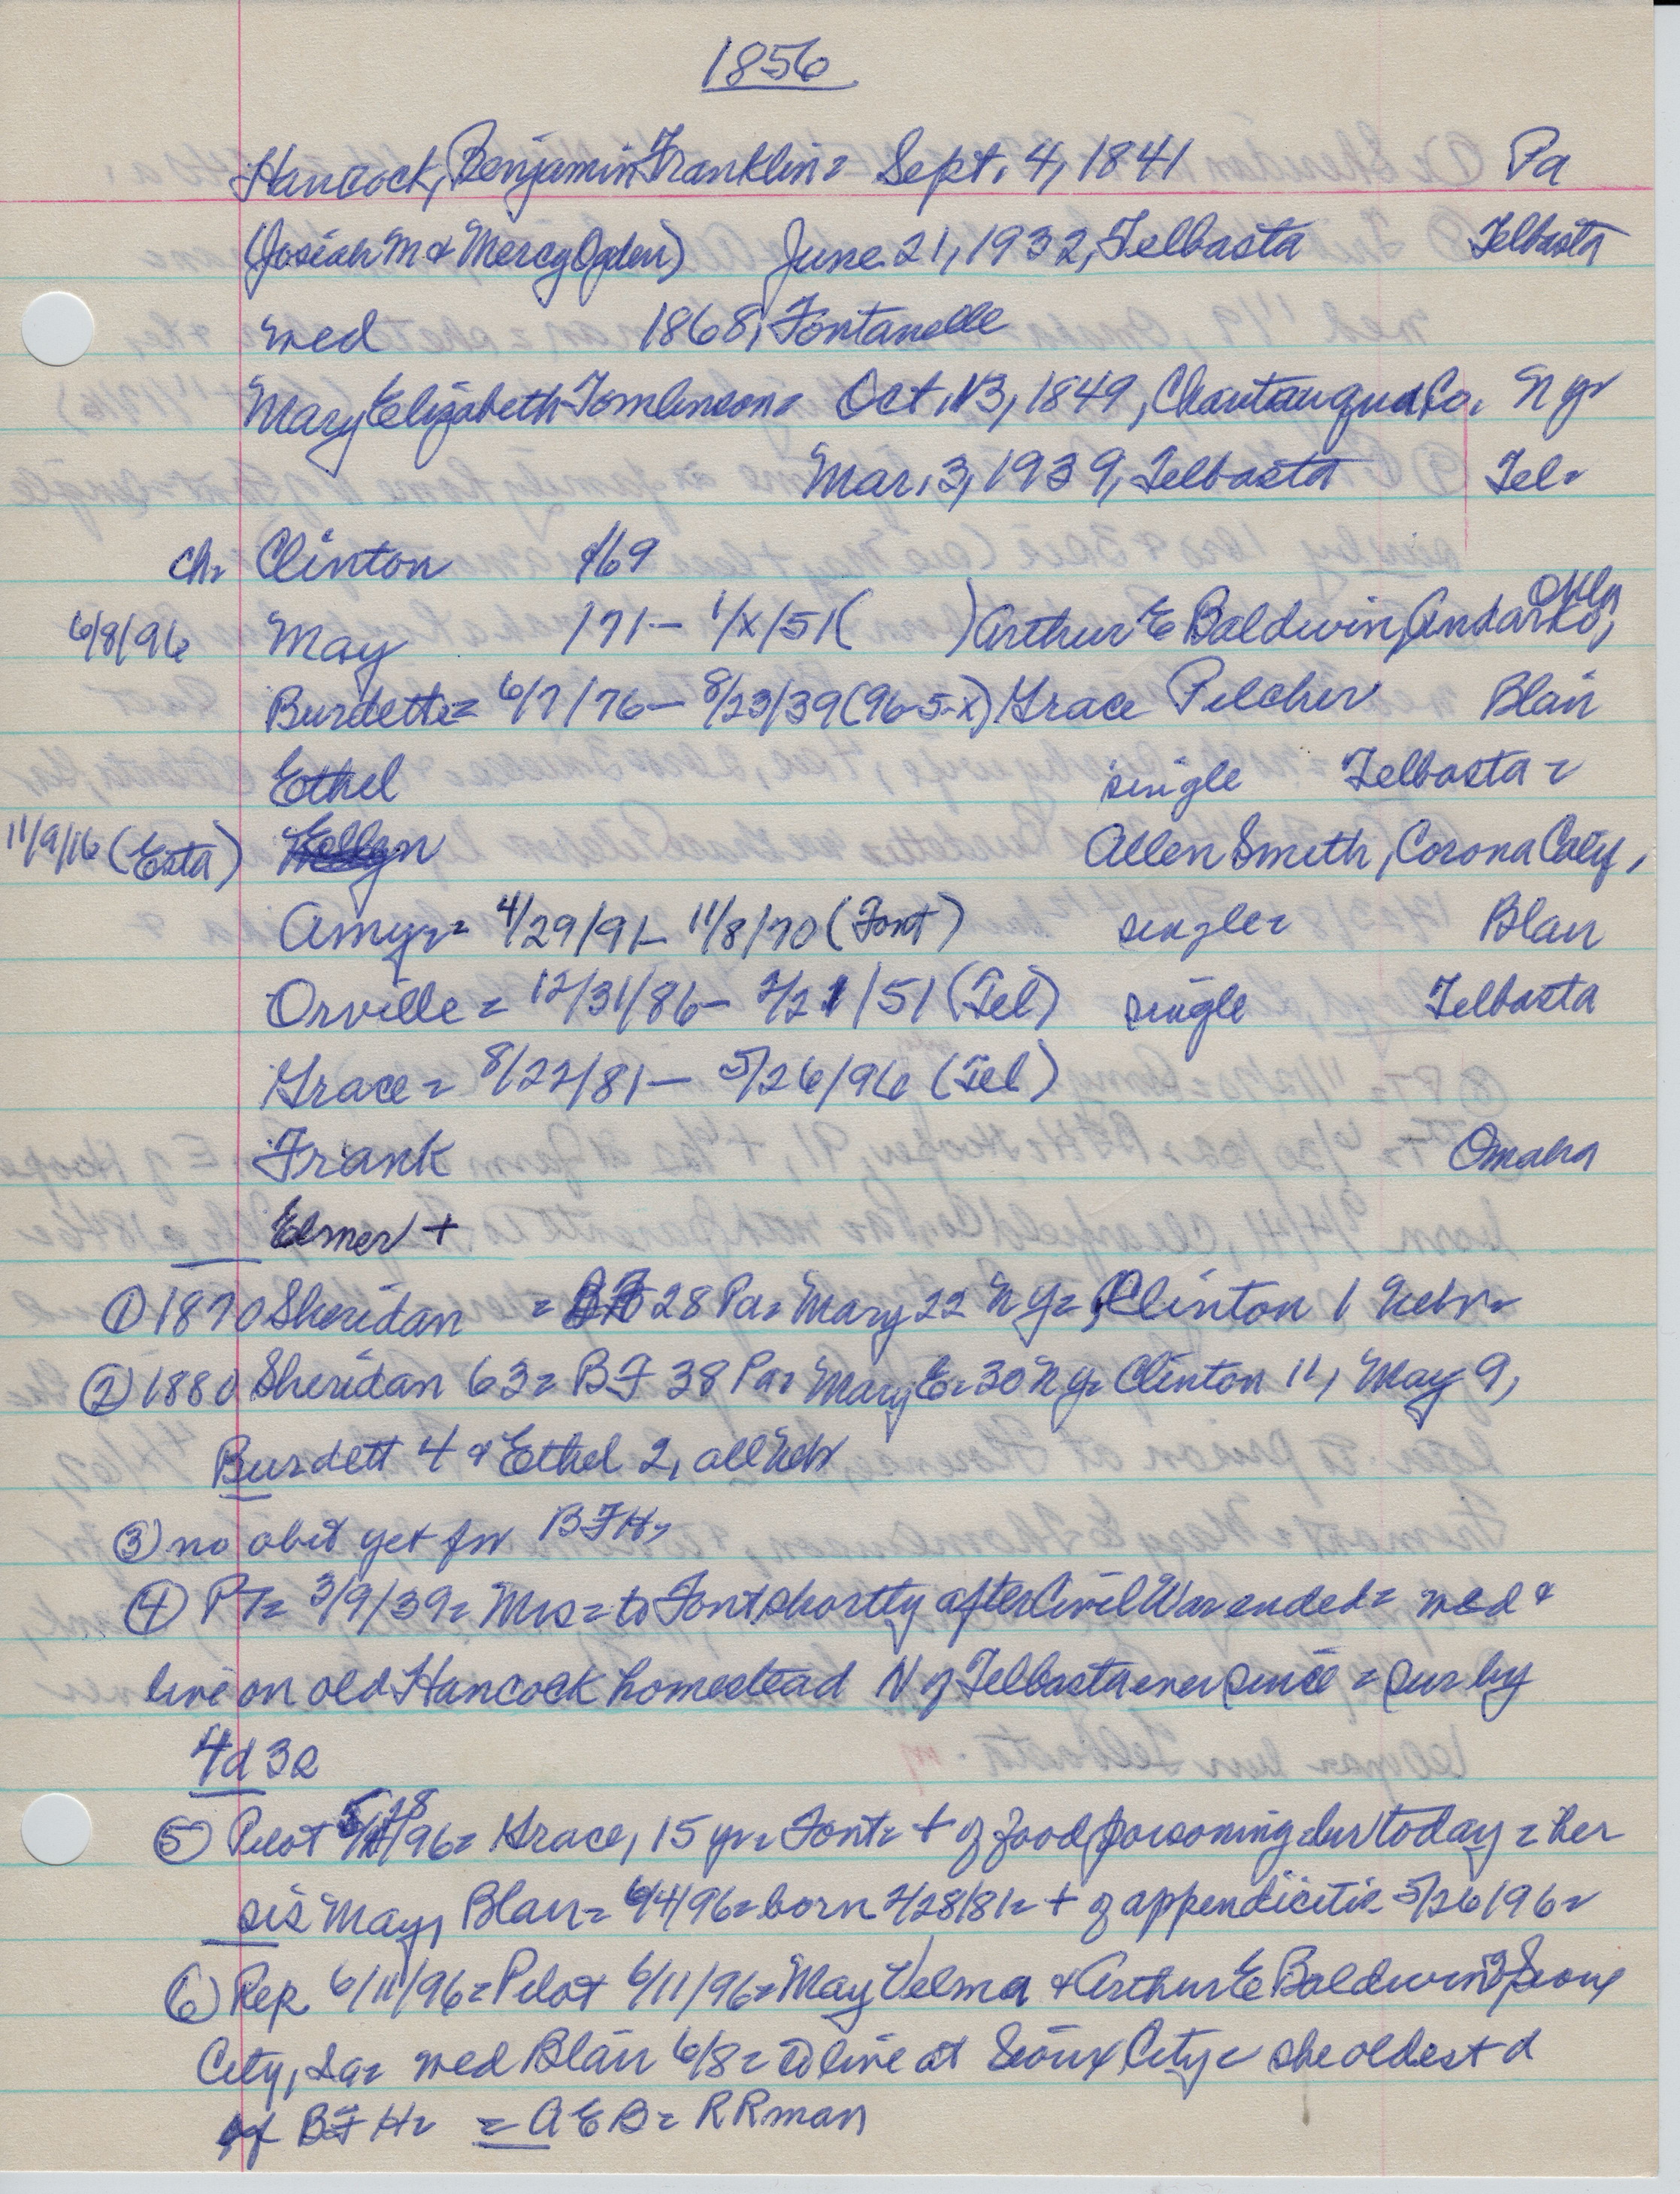 1856
Hancock, Benjamin Franklin= Sept. 4, 1841 Pa
(Josiah M & Mercy Ogden) June 21, 1932, Telbasta Telbasta
med 1868, Fontanelle
Mary Elizabeth Tomlinson= Oct. 13, 1849, Chautauqua Co. N Y=
Mar. 3, 1939, Telbasta Tel=
ch= Clinton /69
6/8/96 May /71- 1/x/51( ) Arthur E Baldwin, Andarko, Okla
Burdette= 6/7/76- 8/23/39(96-5-x) Grace Pilcher Blair
Ethel single Telbasta=
11/9/16 (Esta) Allen Smith, Corona Calif,
Amy= 4/29/91- 11/8/70 (Font) single= Blair
Orville= 12/31/86- 2/21/51 (Tel) single Telbasta
Grace= 8/22/81- 5/26/96 (Tel)
Frank Omaha
Elmer +
① 1870 Sheridan = BF 28 Pa= Mary 22 N Y= Clinton 1 Nebr=
② 1880 Sheridan 63= BF 38 Pa= Mary E=30 N Y= Clinton 11, May 9,
Burdett 4 & Ethel 2, all Neb
③ no obit yet for BFH=
④ PT= 3/9/39= Mrs= to Font shortly after Civil War ended= med &
live on old Hancock homestead N of Telbasta ever since= sur by
4d 3s
⑤ Pilot 5/28/96= Grace, 15 yr= Font= + of food poisoning= bur today= her
sis May, Blair= 6/4/96= born 2/28/81= + of appendicitis 5/26/96=
⑥ Rep 6/11/96= Pilot 6/11/96= May Velma & Arthur E Baldwin of Sioux
City, Ia= med Blair 6/8= to live at Sioux City= she oldest d
of BFH= = A E B= R R man